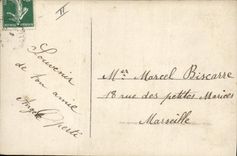 Souvenir
de ton amie
Mr Marcel Biscarre
18 rue des petites Maries
Marseille